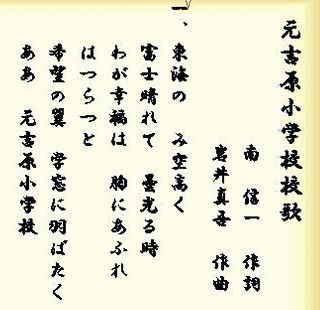 元吉原小学校校歌
南 信一 作詞
岩井真吾 作曲
一、
東海の み空高く
富士晴れて 雲光る時
わが幸福は 胸にあふれ
はつらつと
希望の翼 学窓に羽ばたく
ああ 元吉原小学校